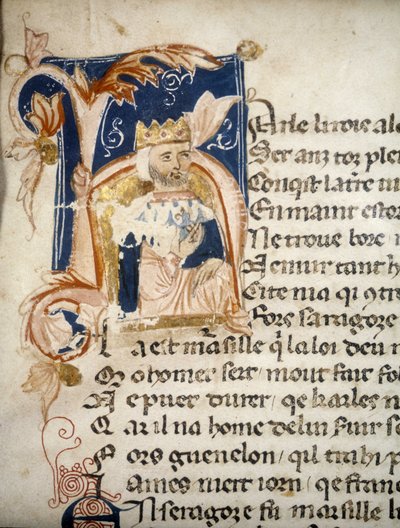 arle li rois ale
Set anz toz plei
Conqist la tre iu
En maint estor
Ne troue bore ne
Ne mur tant h
Cite nia qi 9tre
Fore saragoxe
La est marsille q̃ la loi deu n
Mahomet sert · mout fait fol
Ne puet durer · qe karles n
Car il na home de lui s
Fors guenelon · qil trahi p
Iames niert iorn · qe franc
N saragoxe fu marsille